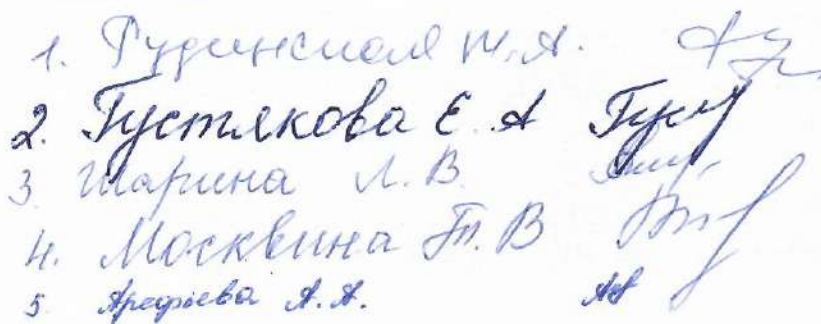 1. Гудинская Н.А.
2. Густякова Е. А
3. Шарина Л. В.
4. Москвина Т. В
5 Арефьева А. А.